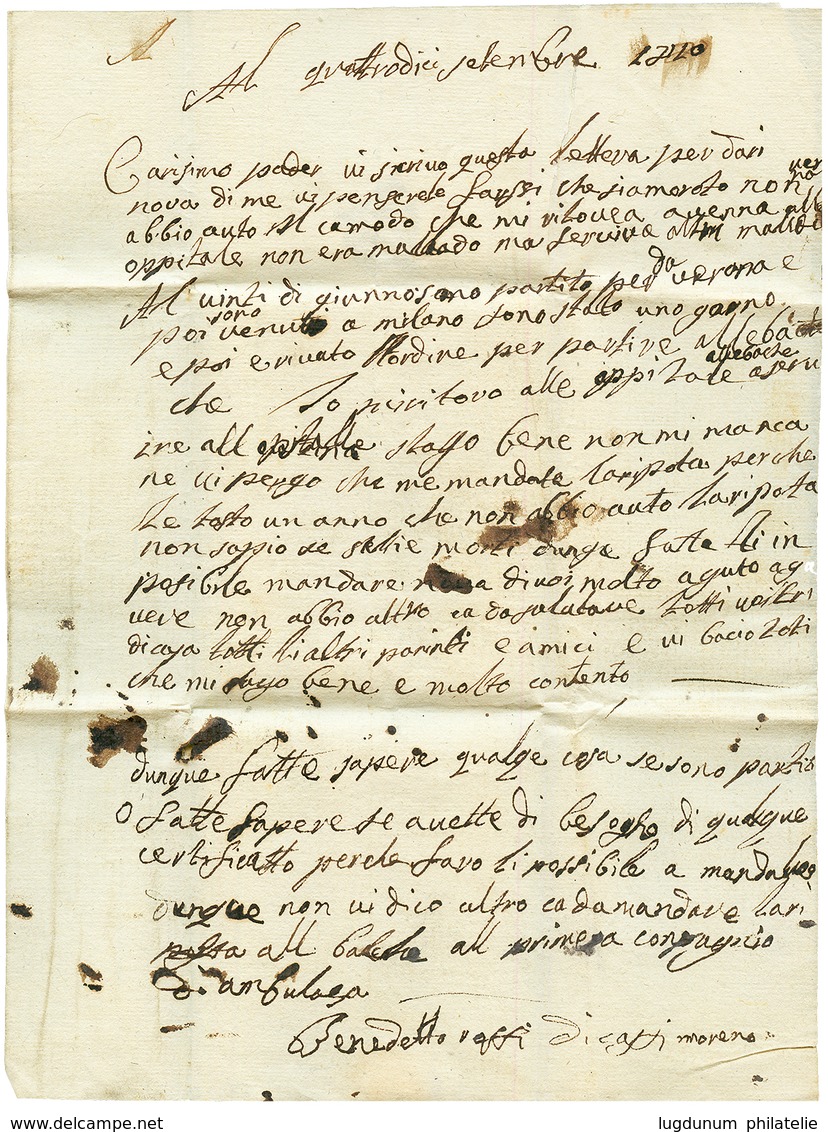 Al quattrodici setenbre
Carisimo pader vi scrivo questa lettera per dari
nova di me vi penserete forssi che sia moroto non
abbio auto Il camodo che mi ritovea avenna all
oppitale non era malado ma serviva altri
Al vinti di giunno sono partito per da verona e
poi sono venuto a milano sono stato uno gorno
e poi e rivato l'lordine per partire alle
che Io ritovo alle oppitale alle bache aserv
ire all stago bene non mi manca
ne vi pergo che me mandate la riposta perche
he tosto un anno che non abbio auto la riposta
non sappio se morti dunqe fatte lli in
posibile mandare nova di voi molto aguto
vere non abbio altro ca da salutave totti vostri
di casa totti li altri parinti e amici e vi bacio toti
che mi stago bene e molto contento
dunque fatte sapere qualqe cosa se sono partit
O fatte sapere se avette di besogno di qualque
certificatto perche faro li possibile a
dunque non vi dico altro ca da mandare la ri
posta all balche all primera conpagnio
di ambulaza
Benedetto rossi di moreno
www.delcampe.net
lugdunum philatelie